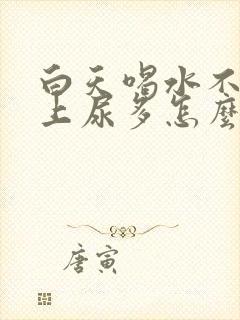 白天喝水不
上尿多怎麼
唐寅